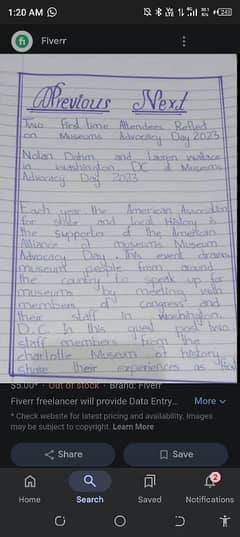 1:20 AM
Fiverr
Previous Next
Two First time Attendees Reflect
on Museums Advocacy Day 2023
Nolan Dahm and Lauren Wallace
in Washington, DC at Museums
Advocacy Day 2023
Each year the American Association
for State and Local History is
the supporter of the American
Alliance of museums Museum
Advocacy Day. This event draws
museum people from around
the country to speak up for
museums by meeting with
members of congress and
their staff in Washington,
D.C. In this guest post two
staff members from the
charlotte Museum of history
share their experiences as first
$5.00* · Out of stock · Brand: Fiverr
Fiverr freelancer will provide Data Entry... More
* Check website for latest pricing and availability. Images
may be subject to copyright. Learn More
Share Save
2
Home Search Saved Notifications